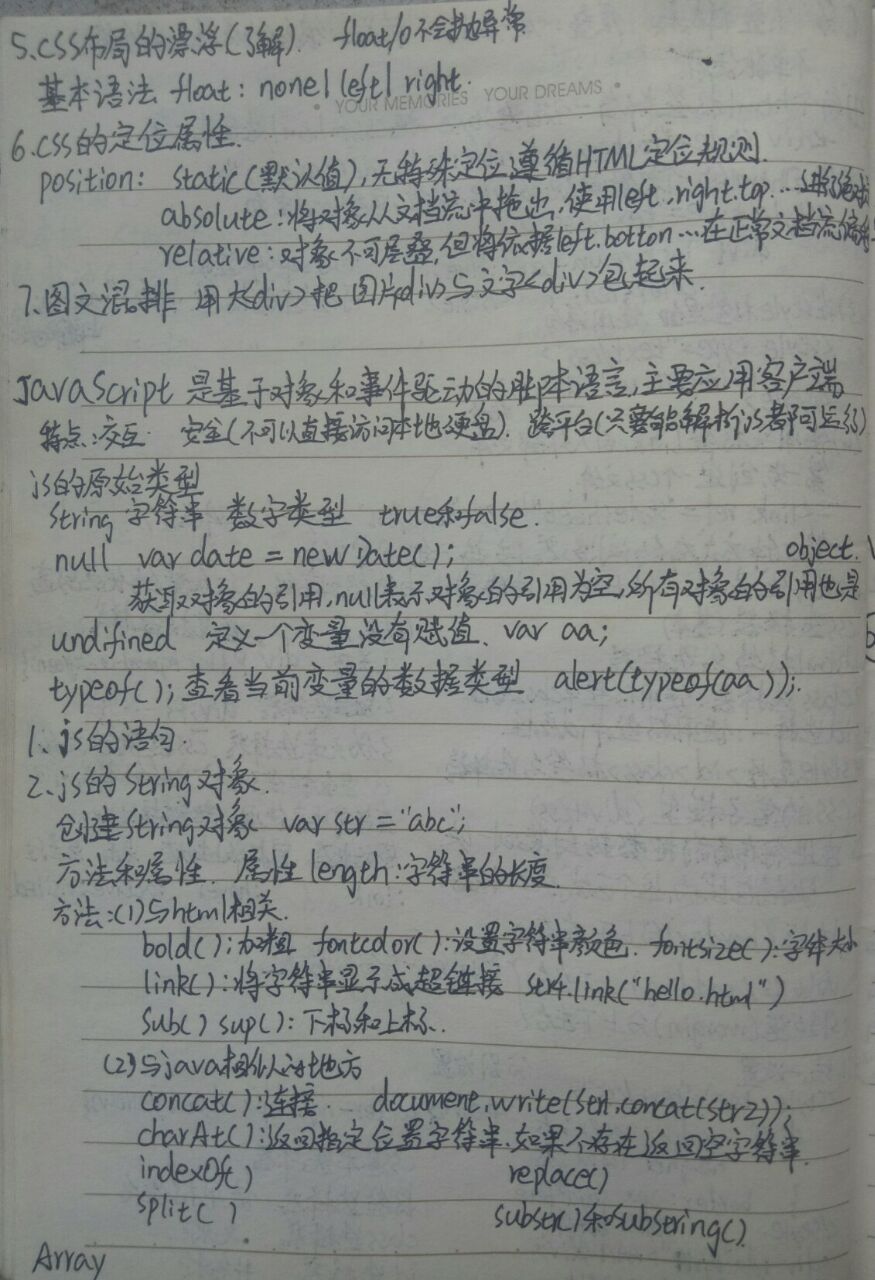 5、CSS布局的漂浮(了解). float/0不会抛异常
基本语法 float: none| left| right.
• YOUR MEMORIES YOUR DREAMS •
6、CSS的定位属性.
position: static(默认值),无特殊定位,遵循HTML定位规则.
absolute:将对象从文档流中拖出,使用left,right.top…进行绝对
relative:对象不可层叠,但将依据left.botton…在正常文档流偏移
7、图文混排 用大<div>把图片<div>与文字<div>包起来.
JavaScript 是基于对象和事件驱动的脚本语言,主要应用客户端
特点:交互 安全(不可以直接访问本地硬盘). 跨平台(只要能解析js者都可运行)
js的原始类型
String 字符串 数字类型 true和false.
null var date = new Date(); object.
获取对象的引用,null表示对象的引用为空,所有对象的引用也是
undifined 定义一个变量没有赋值. var aa;
typeof();查看当前变量的数据类型 alert(typeof(aa));
1、js的语句.
2、js的String对象.
创建String对象 var str = "abc";
方法和属性. 属性length:字符串的长度.
方法:(1)与html相关.
bold();加粗 fontcolor():设置字符串颜色. fontsize():字体大小
link():将字符串显示成超链接 str4.link("hello.html")
sub() sup():下标和上标.
(2)与java相似的地方
concat():连接. document.write(str1.concat(str2));
charAt():返回指定位置字符串.如果不存在返回空字符串.
indexOf() replace()
split() substr()和substring()
Array